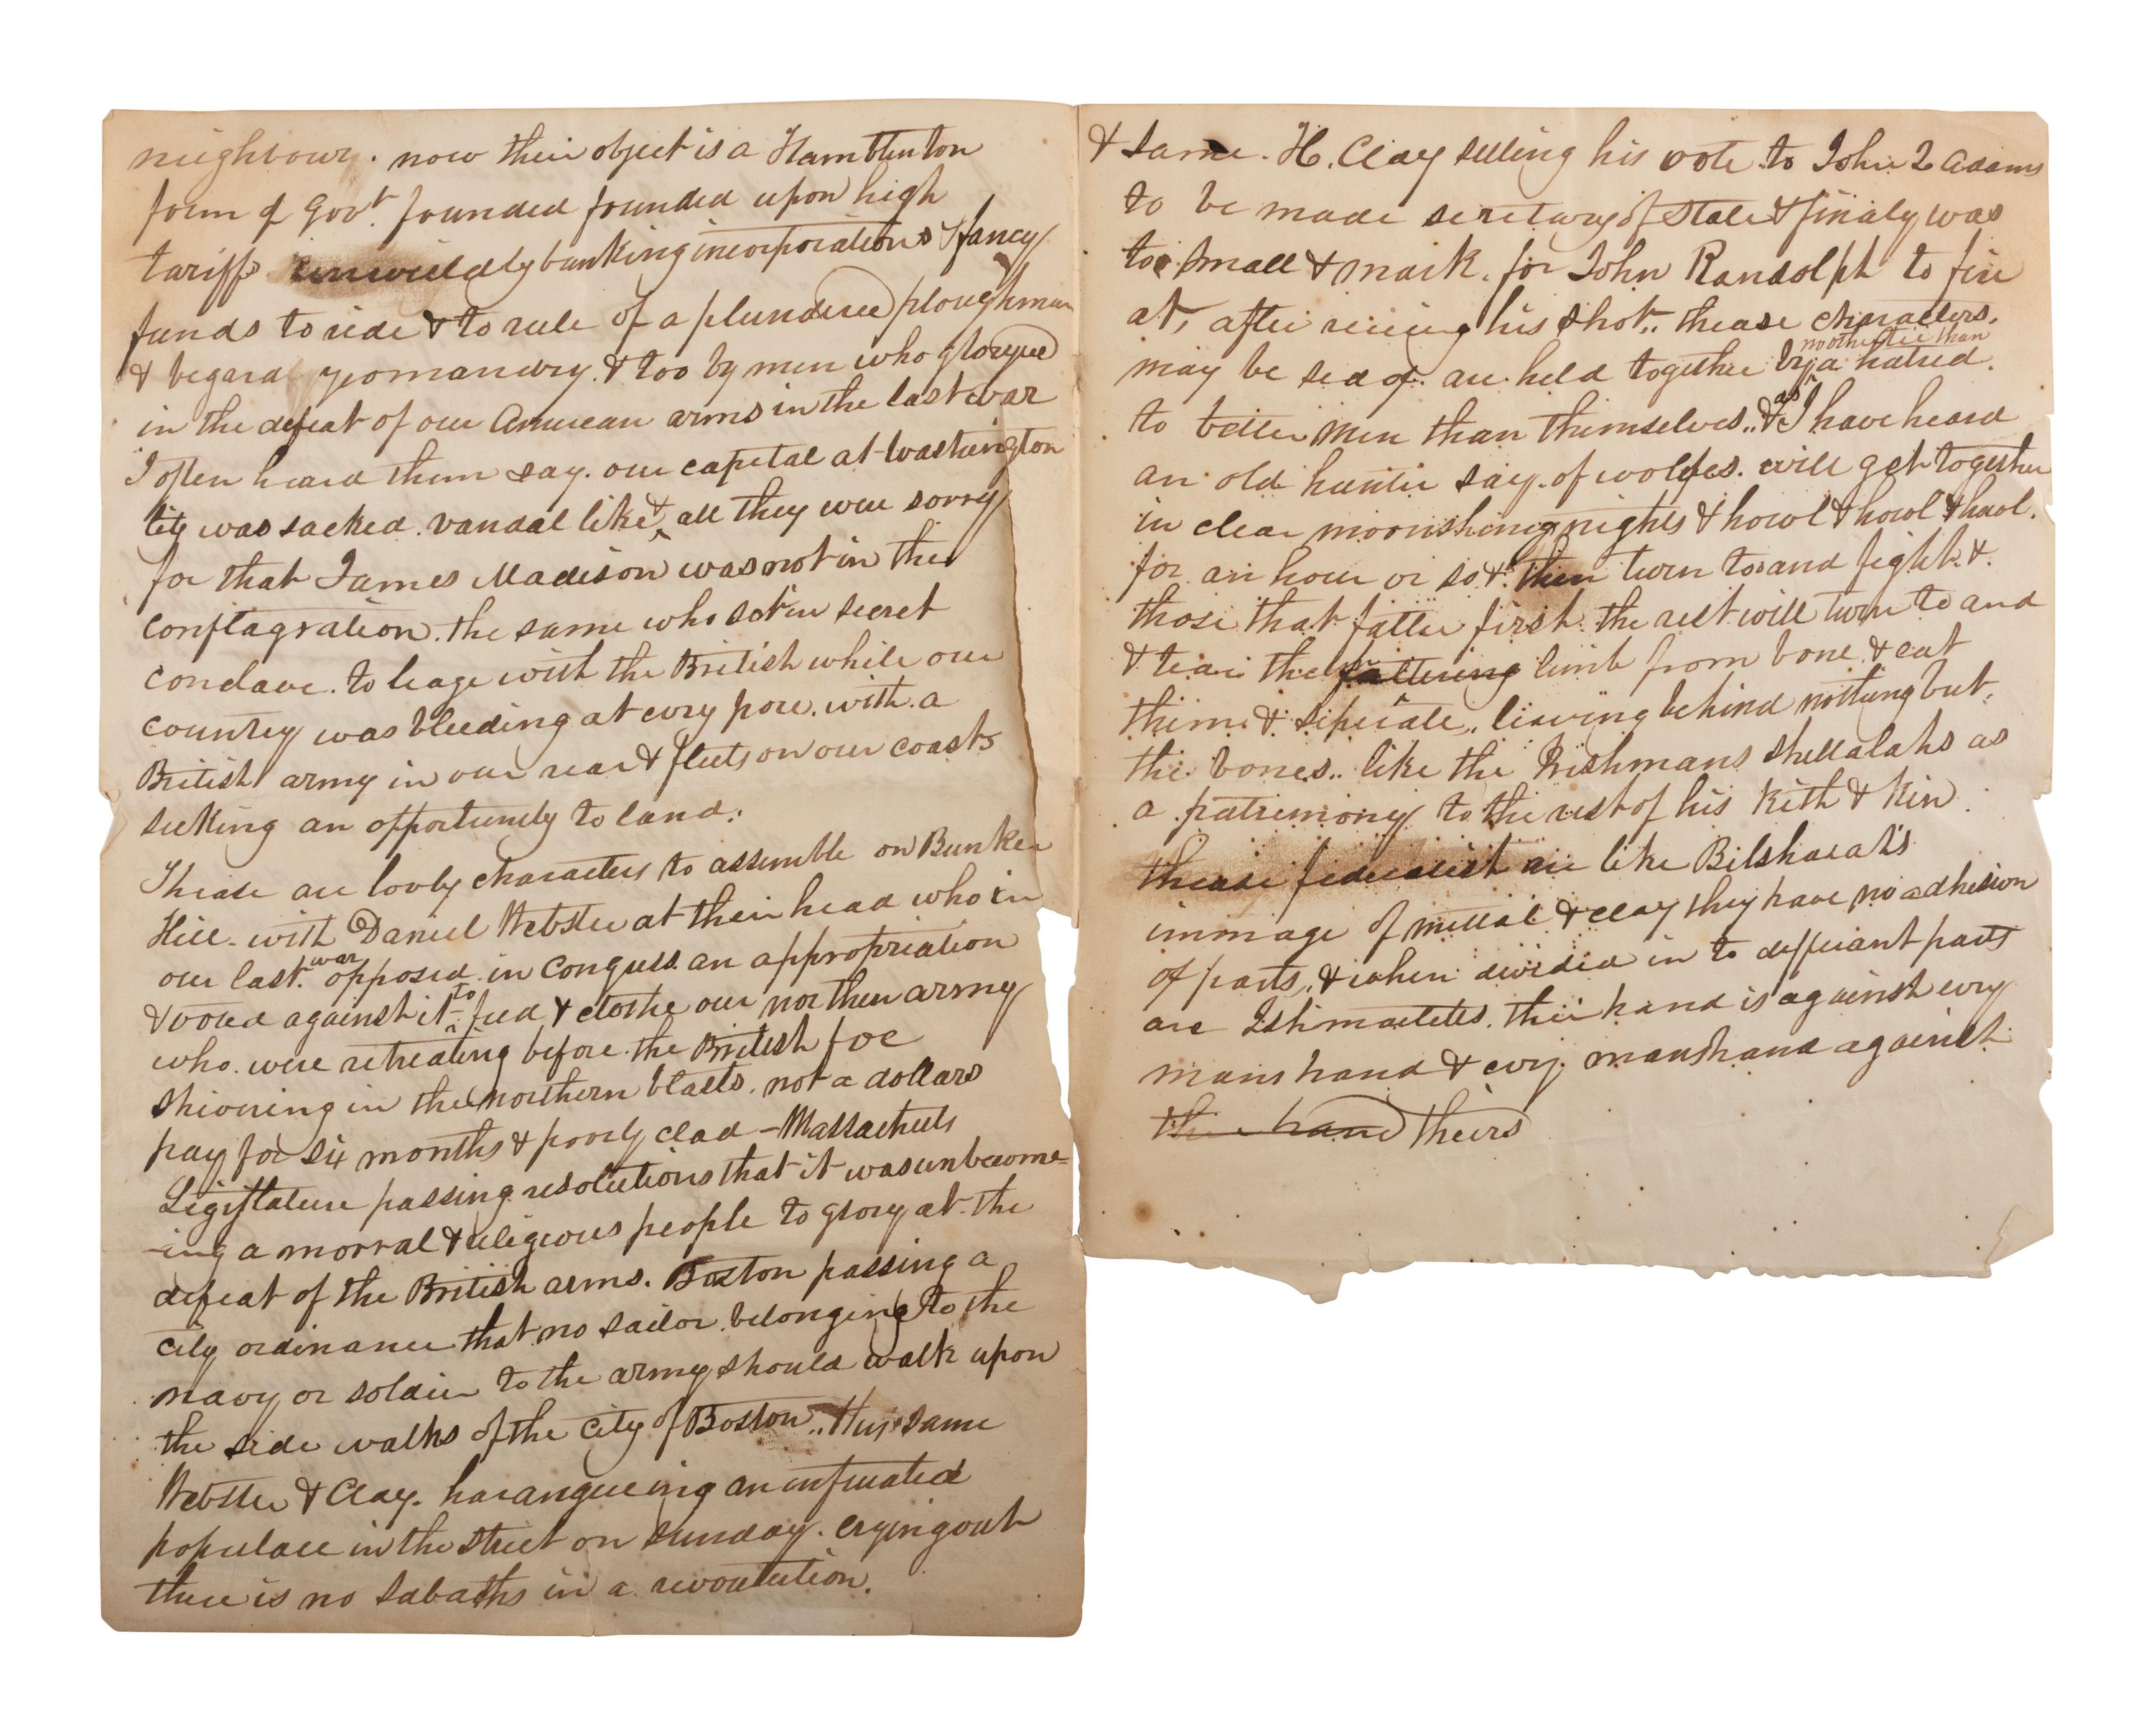 neighbours. now their object is a Hamblinton
form of Govt. founded founded upon high
tariffs unwieldly banking incorporations & fancy
funds to ride & to rule of a plundered ploughman
& begard yeomanwry. & too by men who gloryed
in the defeat of our American arms in the last war
I often heard them say. our capetal at Washington
City was sacked. vandal like & all they were sorry
for that James Madison was not in the
conflagration. the same who set in secret
conclave. to leage with the British while our
country was bleeding at evry pore. with a
British army in our rear & fleets on our coasts
seeking an opportunity to land:
Thease are lovly characters to assemble on Bunker
Hill - with Daniel Webster at their head who in
our last war opposed in Congress an appropriation
& voted against it - to feed & clothe our northern army
who were retreating before the British foe
shivering in the northern blasts. not a dollars
pay for six months & poorly clad - Massachusets
Legislature passing resolutions that it was unbecome=
-ing a morral & religious people to glory at the
defeat of the British arms. Boston passing a
City ordinance that no sailor belonging to the
navy or soldier to the army should walk upon
the side walks of the City of Boston.. This same
Webster & Clay. harangueing an infuriated
populace in the street on Sunday. crying out
there is no Sabaths in a revolution.
& same. H. Clay selling his vote to John Q Adams
to be made secretary of State & finaly was
too small & mark. for John Randolph to fire
at, after reciveing his shot.. thease characters.
may be sed of. are held together by no other tie than a hatred.
to better men than themselves.. & as I have heard
an old hunter say. of wolfes. will get together
in clear moonshining nights & howl & howl & haol.
for an hour or so & then turn to and fight. &
those that falter first. the rest will turn to and
& tear the faltering limb from bone. & eat
them. & seperate.. leaving behind nothing but.
the bones.. like the Irishmans shellalahs as
a patrimony to the rest of his Kith & Kin
thease federalist are like Bilsharats
immage of mettal & clay they have no adhesion
of parts,. & when devided in to defferant parts
are Ishmaelites. their hand is against evry
mans hand & evry mans hand against
their hand theirs